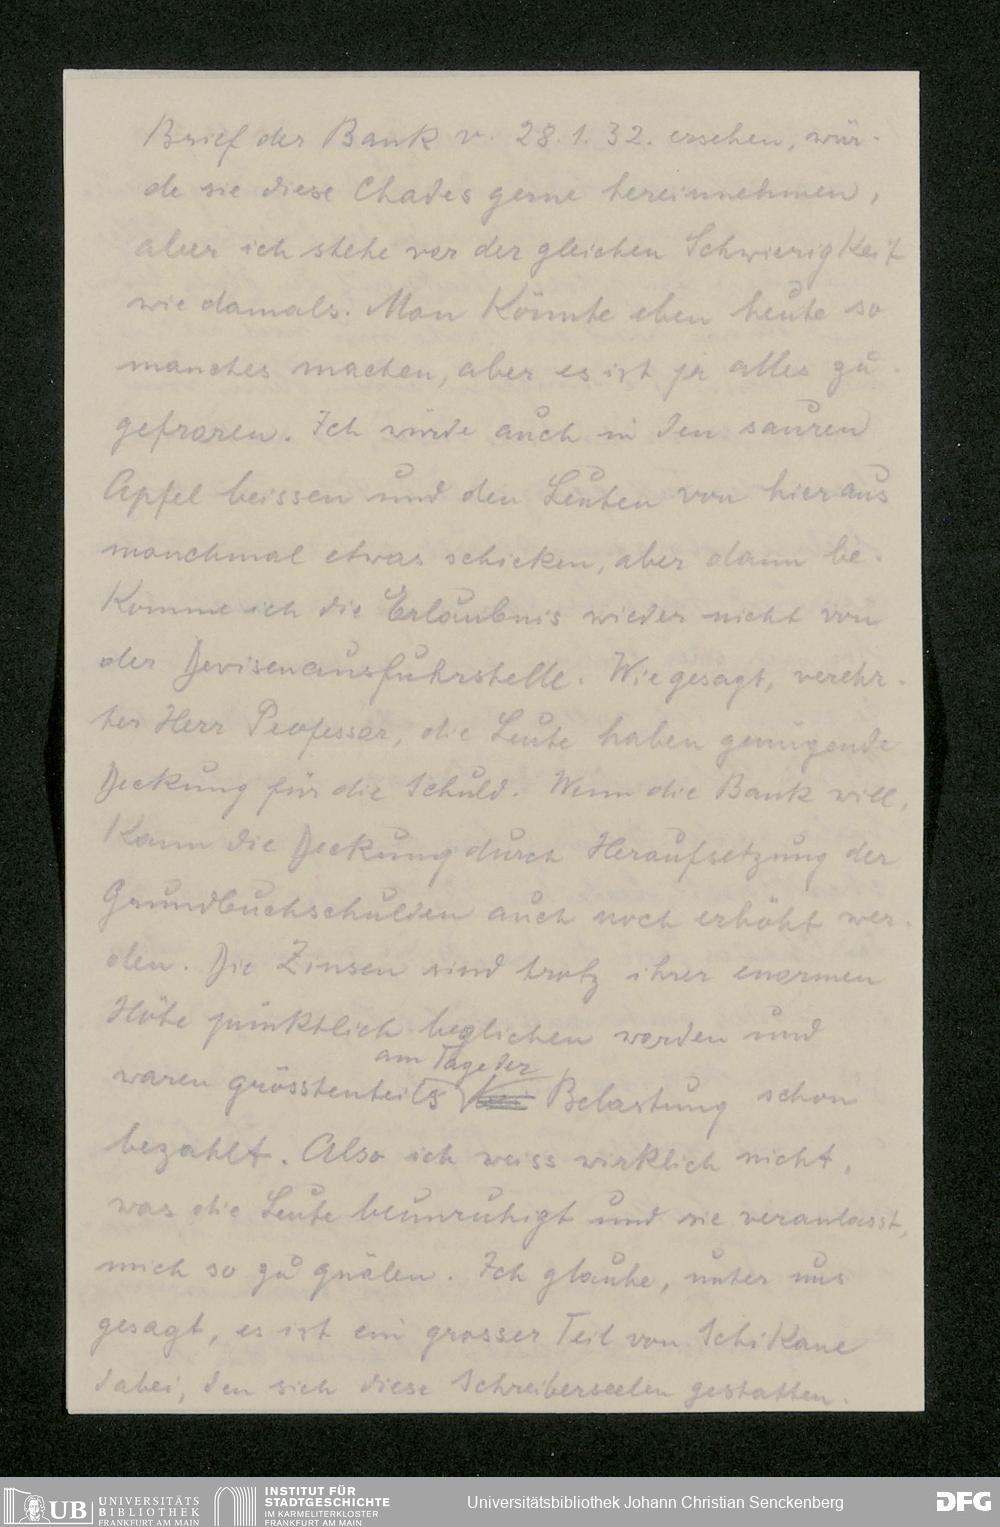 Brief der Bank v. 28.1.32. ersehen, wür-
de sie diese Chades gerne hereinnehmen,
aber ich stehe vor der gleichen Schwierigkeit
wie damals. Man könnte eben heute so
manches machen, aber es ist ja alles zu-
gefroren. Ich würde auch in den sauren
Apfel beissen und den Leuten von hier aus
manchmal etwas schicken, aber dann be-
komme ich die Erlaubnis wieder nicht von
der Devisenausfuhrstelle. Wie gesagt, verehr-
ter Herr Professor, die Leute haben genügende
Deckung für die Schuld. Wenn die Bank will,
kann die Deckung durch Heraufsetzung der
Grundbuchschulden auch noch erhöht wer-
den. Die Zinsen sind trotz ihrer enormen
Höhe pünktlich beglichen worden und
am Tage der
waren grösstenteils Belastung schon
bezahlt. Also ich weiss wirklich nicht,
was die Leute beunruhigt und sie veranlasst,
mich so zu quälen. Ich glaube, unter uns
gesagt, es ist ein grosser Teil von Schikane
dabei, den sich diese Schreiberseelen gestatten.
UB UNIVERSITÄTS
BIBLIOTHEK
FRANKFURT AM MAIN
INSTITUT FÜR
STADTGESCHICHTE
IM KARMELITERKLOSTER
FRANKFURT AM MAIN
Universitätsbibliothek Johann Christian Senckenberg
DFG